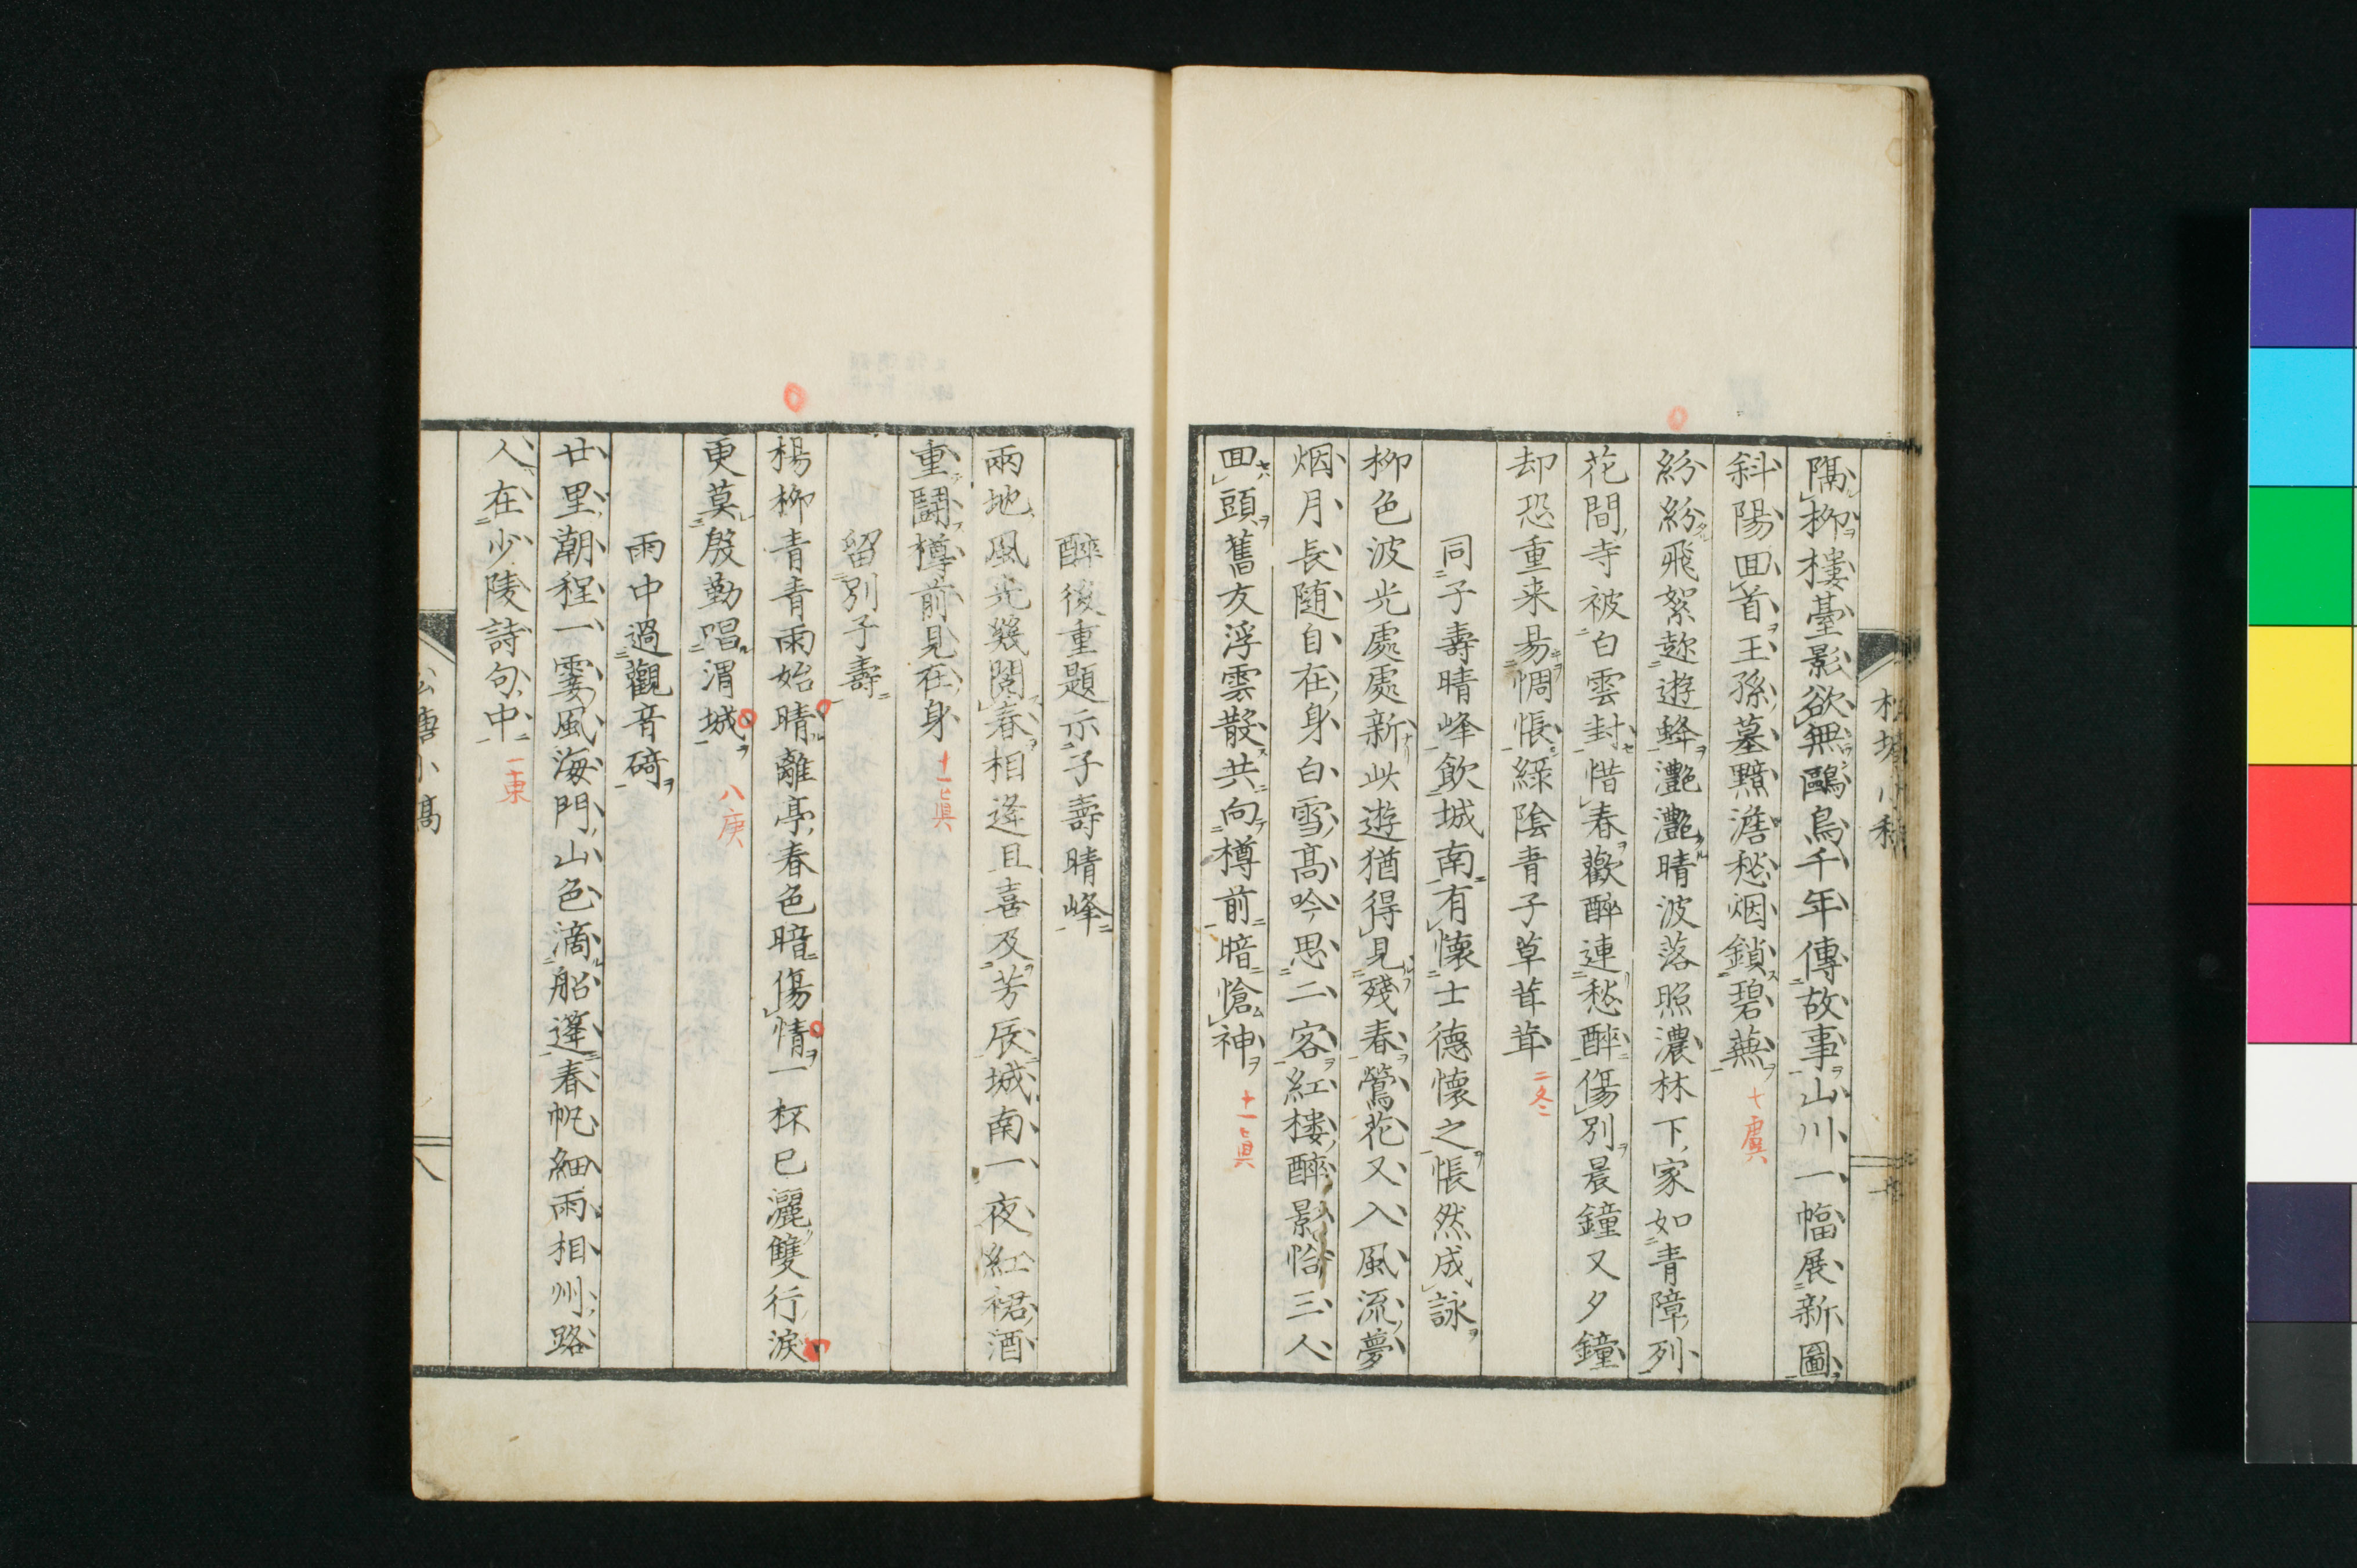 隔柳樓臺影欲無鷗鳥千年傳故事山川一幅展新圖
斜陽回首王孫墓黯澹愁烟鎖碧蕪 十虞
紛紛飛絮趂遊蜂灔灔晴波落照濃林下家如青障列
花間寺被白雲封惜春歡醉連愁醉傷別晨鐘又夕鐘
却恐重来易惆悵綠陰青子草茸茸 二冬
同子壽晴峰飲城南有懷士德懷之悵然成詠
柳色波光處處新此遊猶得見殘春鶯花又入風流夢
烟月長随自在身白雪高吟思二客紅樓醉影恰三人
回頭舊友浮雲散共向樽前暗愴神 十一真
醉後重題示子壽晴峰
兩地風光幾閱春相逢且喜及芳辰城南一夜紅裙酒
重鬪樽前見在身 十一真
留別子壽
楊柳青青雨始晴離亭春色暗傷情一杯已灑雙行淚
更莫殷勤唱渭城 八庚
雨中過觀音碕
廿里潮程一霎風海門山色滴船篷春帆細雨相州路
人在少陵詩句中 一東
八